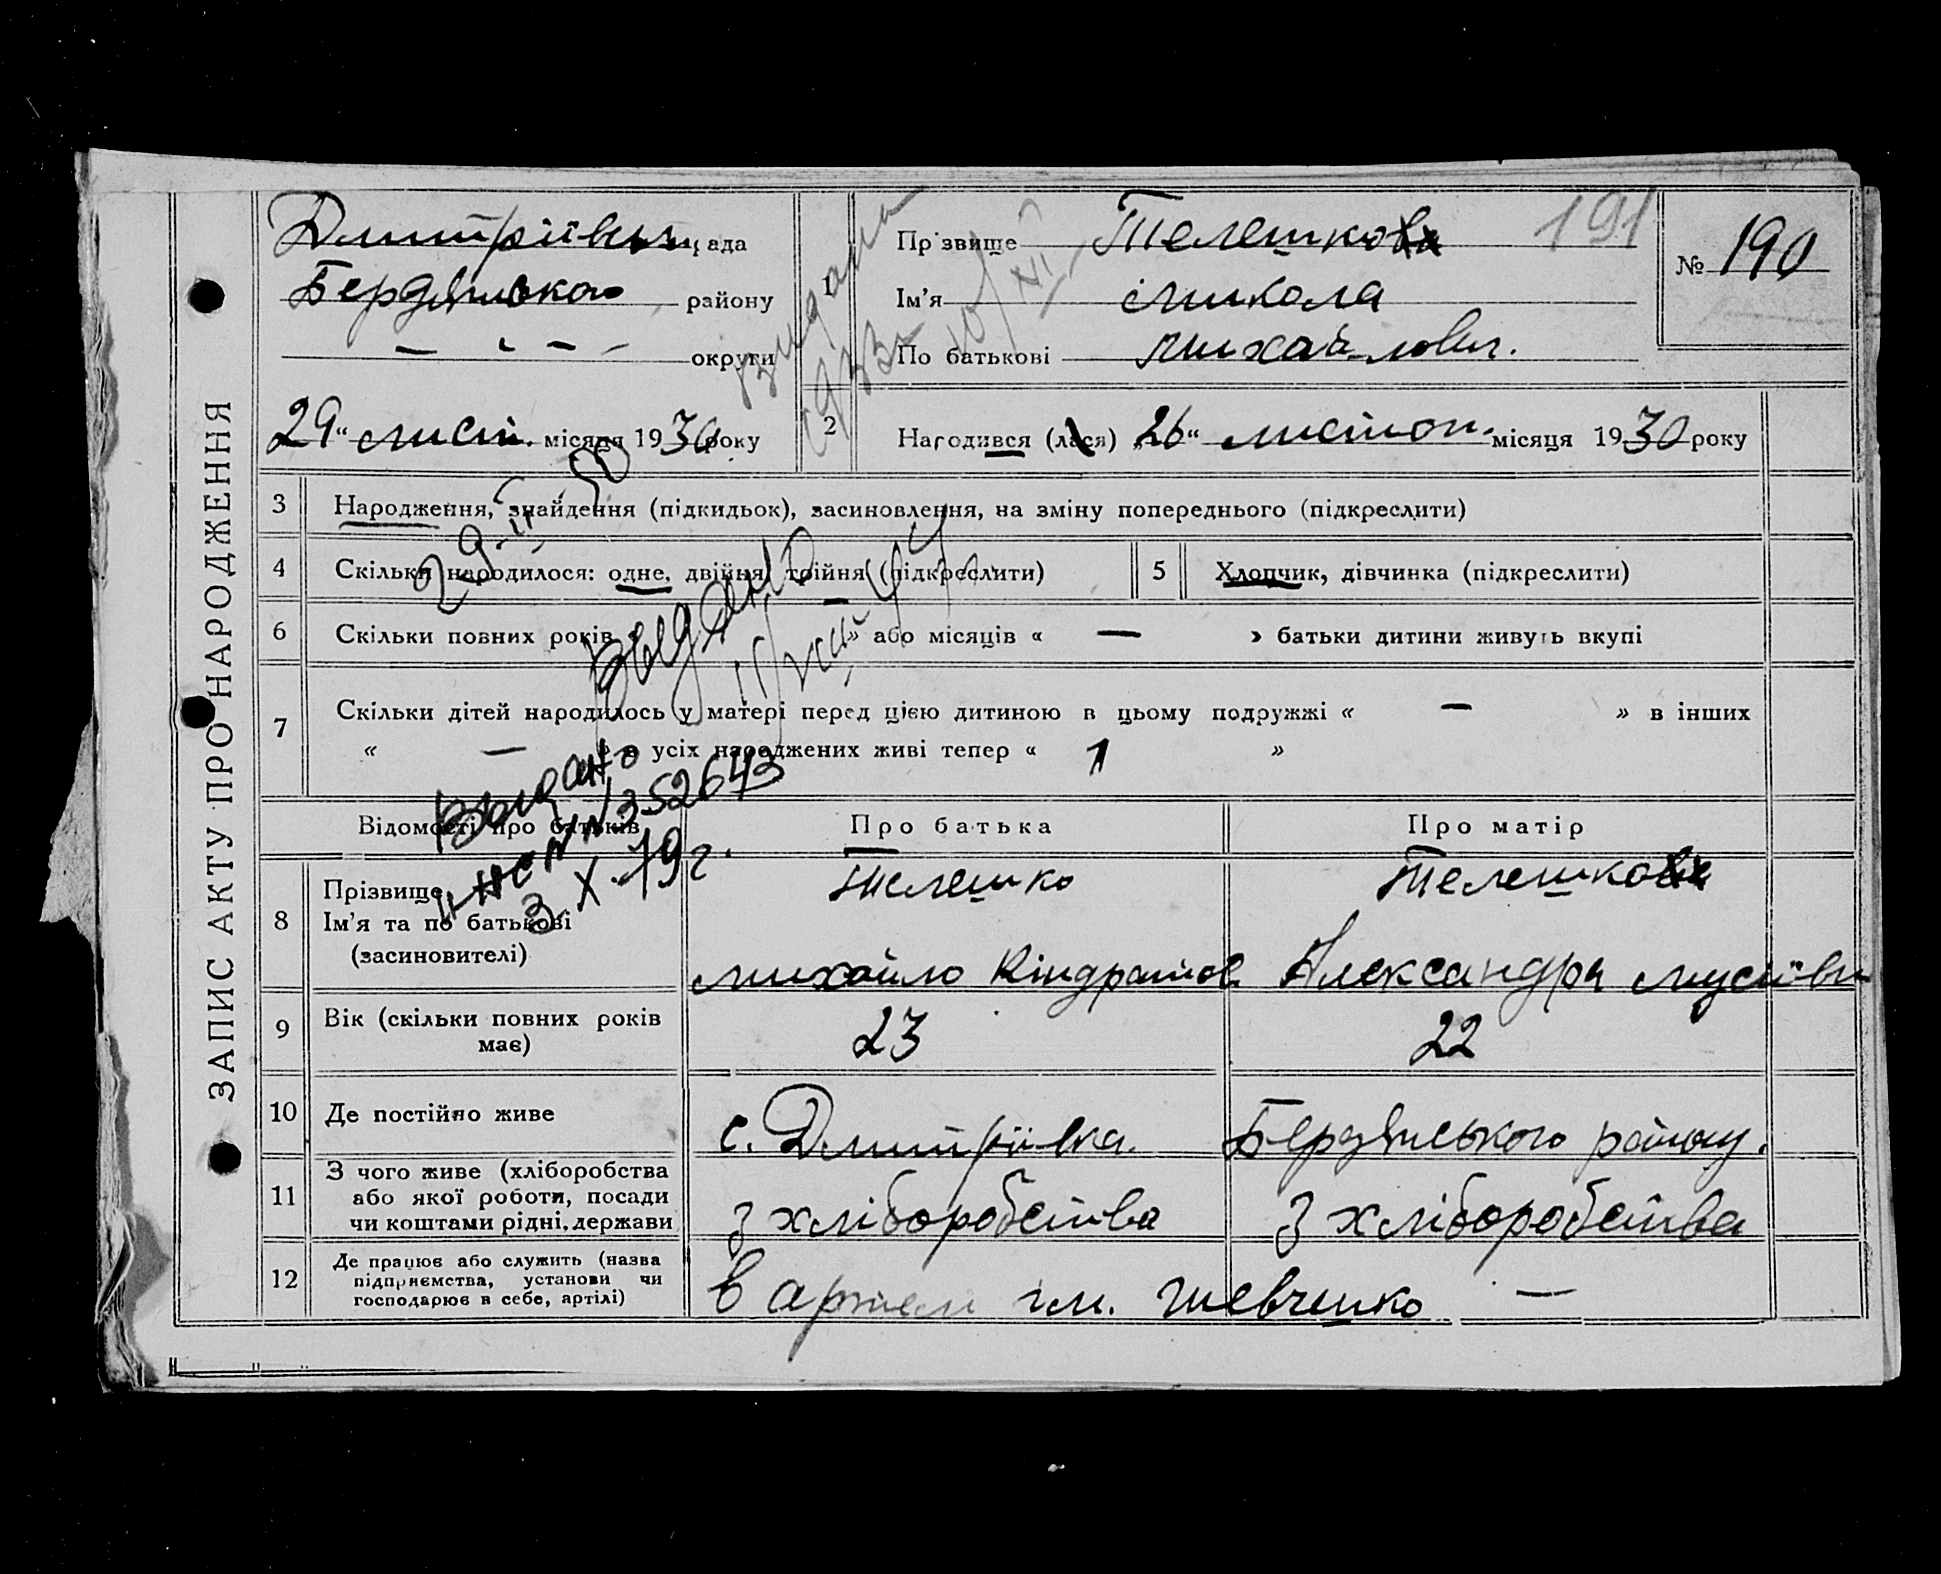 ЗАПИС АКТУ ПРО НАРОДЖЕННЯ
Дмитріївськ рада
Бердянського району
— — — — округи
29 „ лист. місяця 1930 року
1
Прізвище Телешко
191
№ 190
Ім’я Микола
По батькові Михайлович.
2
Народився (лася) 26 „ листоп. місяця 1930 року
видана
3 Народження, знайдення (підкидьок), засиновлення, на зміну попереднього (підкреслити)
4 Скільки народилося: одне, двійня, трійня (підкреслити)
5 Хлопчик, дівчинка (підкреслити)
6 Скільки повних років » або місяців « — » батьки дитини живуть вкупі
7 Скільки дітей народилось у матері перед цією дитиною в цьому подружжі « — » в інших
« — » з усіх народжених живі тепер « 1 »
Выдано
Выдано
II-ЖС № 352643
3.X.79г.
Відомості про батьків
Про батька
Про матір
8 Прізвище
Ім’я та по батькові
(засиновителі)
Телешко
Михайло Кіндратов
Телешко
Александра Мусіївн
9 Вік (скільки повних років
має)
23
22
10 Де постійно живе
с. Дмитрівка. Бердянського району.
11 З чого живе (хліборобства
або якої роботи, посади
чи коштами рідні, держави
З хліборобства
З хліборобства
12 Де працює або служить (назва
підприємства, установи чи
господарює в себе, артілі)
в артели им. Шевченко —